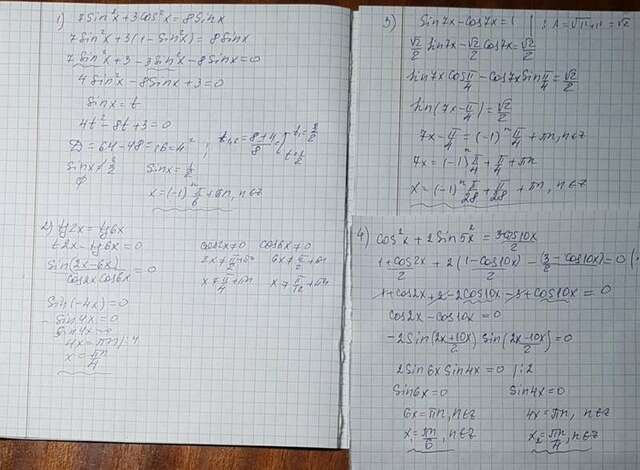 1) 7sin²x+3cos²x=8sinx
7sin²x+3(1-sin²x)=8sinx
7sin²x+3-3sin²x-8sinx=0
4sin²x-8sinx+3=0
sinx=t
4t²-8t+3=0
D=64-48=16=4² ; t₁,₂=8±4/8= t₁=3/2
t=1/2
sinx≠3/2 sinx=1/2
x=(-1)ⁿπ/6+πn, n∈z
2) tg2x=tg6x
tg2x-tg6x=0 cos2x≠0 cos6x≠0
sin(2x-6x)/cos2xcos6x=0 2x≠π/2+πn 6x≠π/2+πn
x≠π/4+πn x≠π/12+πn
sin(-4x)=0
-sin4x=0
sin4x=0
4x=πn/:4
x=πn/4
3) sin7x-cos7x=1 | : A=√1+1=√2
√2/2 sin7x-√2/2 cos7x=√2/2
sin7xcosπ/4-cos7xsinπ/4=√2/2
sin(7x-π/4)=√2/2
7x-π/4=(-1)ⁿπ/4+πn, n∈z
7x=(-1)ⁿπ/4+π/4+πn
x=(-1)ⁿπ/28+π/28+πn, n∈z
4) cos²x+2sin5x²=3cos10x/2
1+cos2x/2+2(1-cos10x)/2-(3/2-cos10x)=0
1+cos2x+2-2cos10x-3+cos10x=0
cos2x-cos10x=0
-2sin(2x+10x/2)sin(2x-10x/2)=0
2sin6xsin4x=0 |:2
sin6x=0 sin4x=0
6x=πn, n∈z 4x=πn, n∈z
x=πn/6, n∈z x₂=πn/4, n∈z